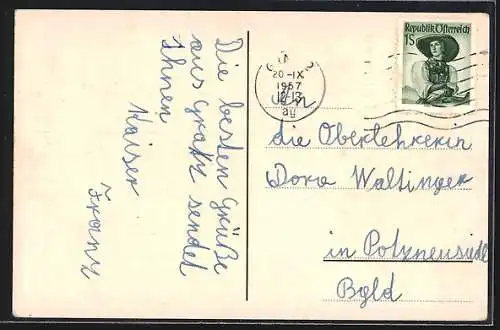 Die besten Grüße
aus Gratz sendet
Ihnen
Kaiser
Franz
Republik Österreich
1S
20-IX
1957
12-13
An
die Oberlehrerin
Dora Waltinger
in Potzneusiedl
Bgld